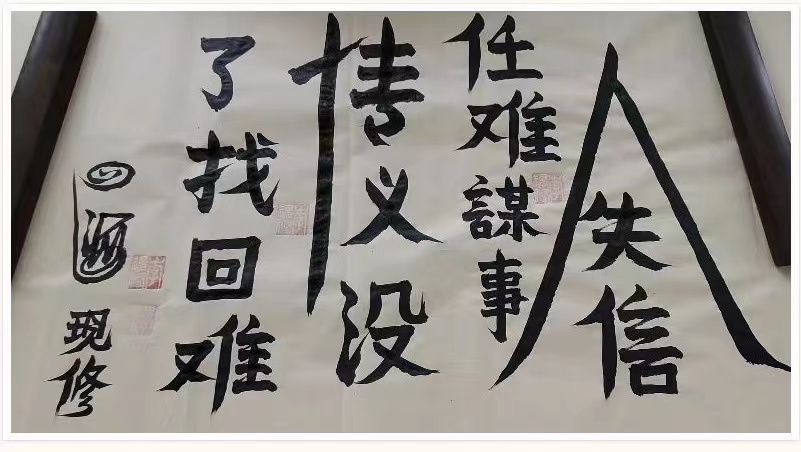 人失信
任难謀事
情义没
了找回难
现修